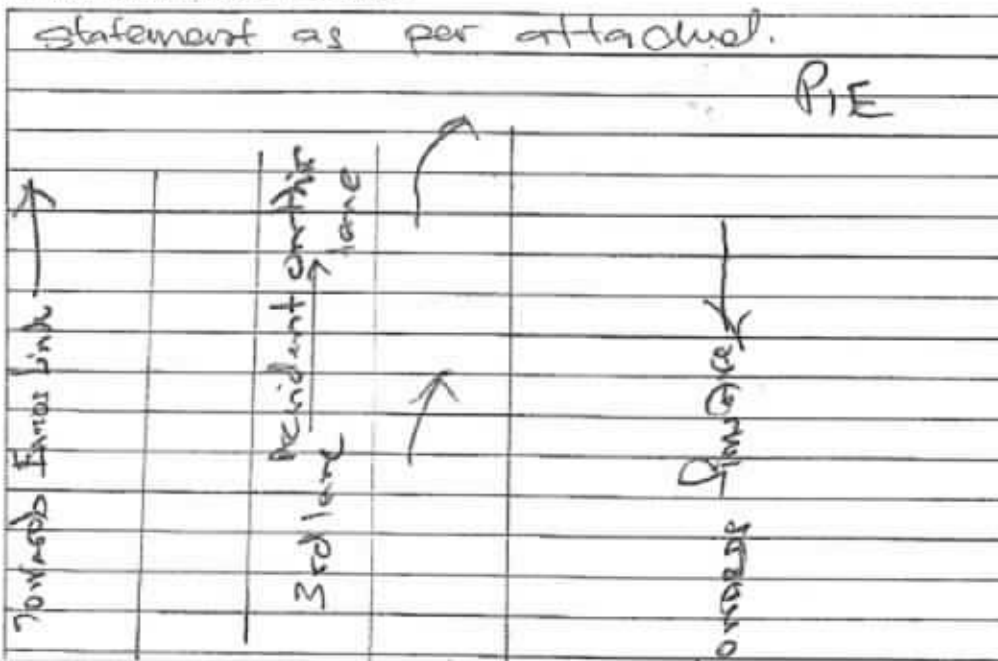 statement as per attached.
PIE
TOWARDS Eunos Link
3rd lane
Accident on this
lane